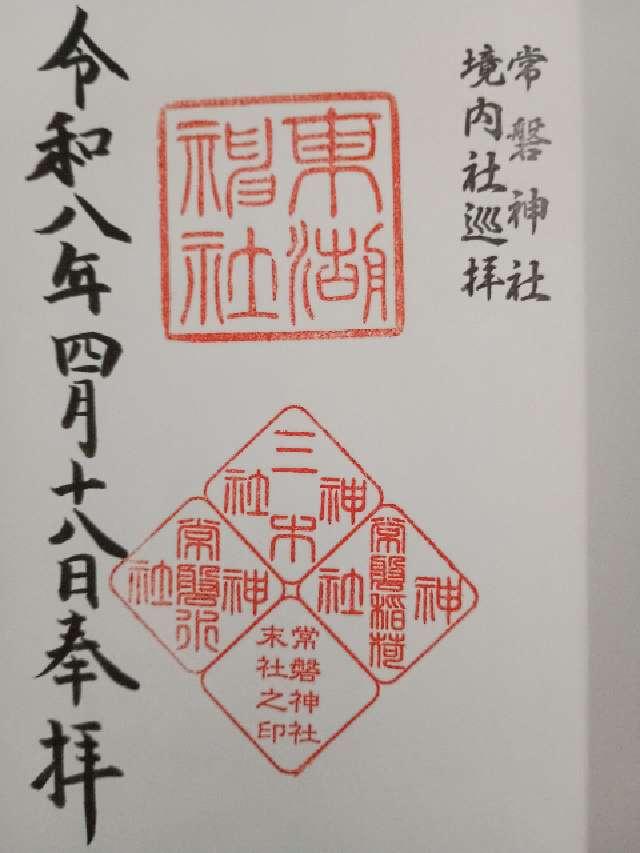 常磐神社
境内社巡拝
東湖
神社
三木
神社
常磐稲荷
神社
常磐
神社
常磐神社
末社之印
令和八年四月十八日奉拝